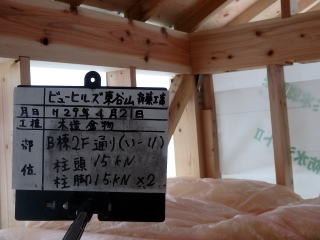 ビューヒルズ東谷山 新築工事
月日 H29年4月2日
工種 木造金物
部位 B棟2F通り(い-り)
柱頭15kN
柱脚15kN×2